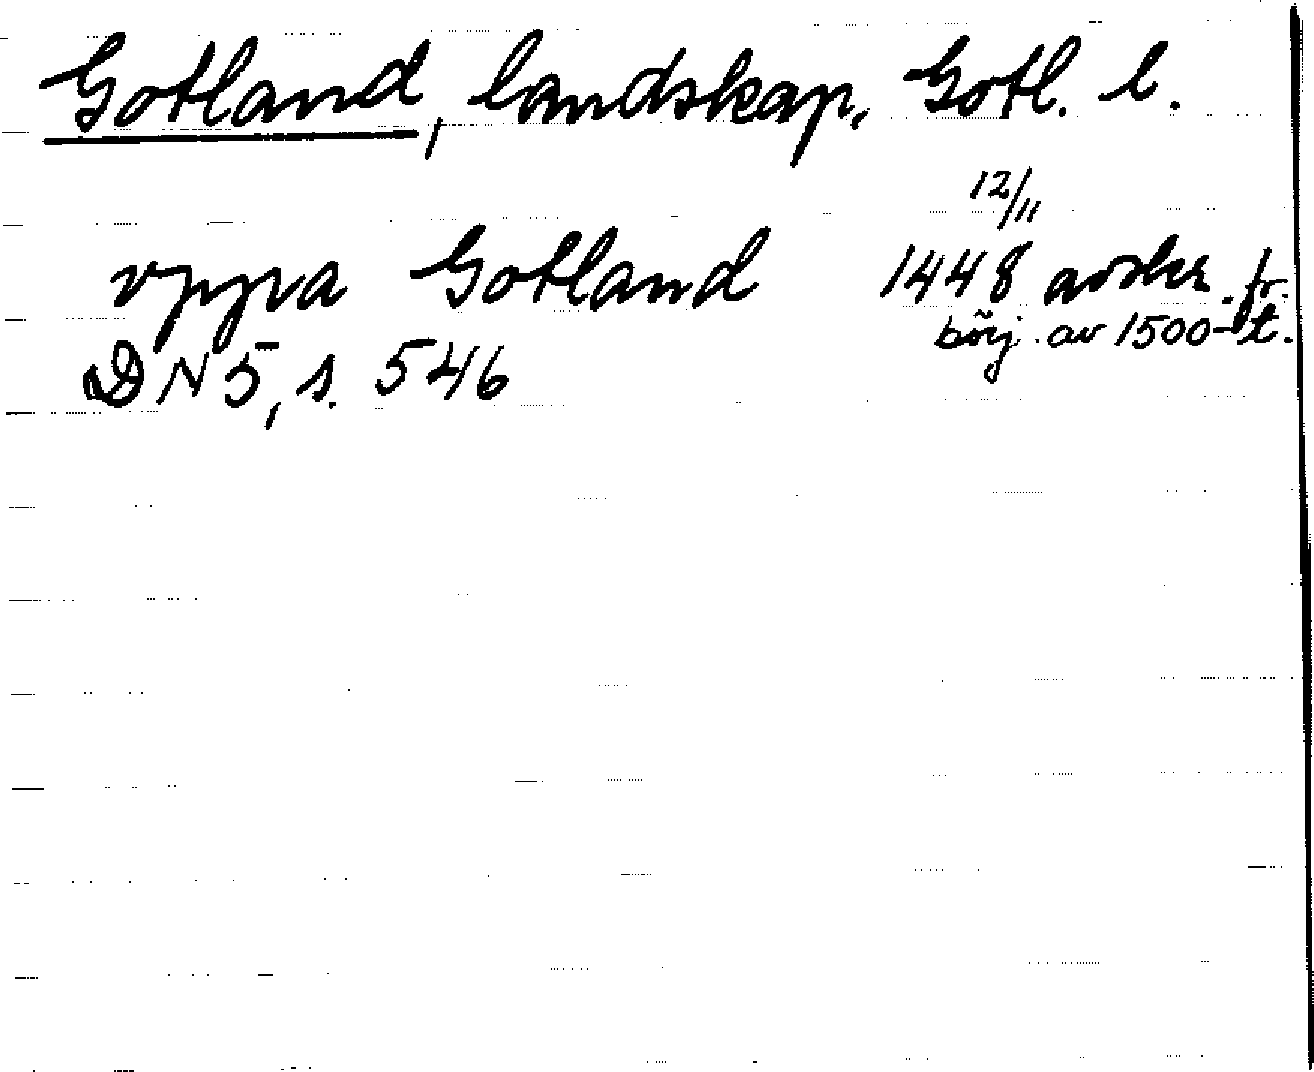 Gotland, landskap, Gotl. l.
vppa Gotland 12/11 1448 avskr. fr.
börj. av 1500-t.
DN 5, s. 546